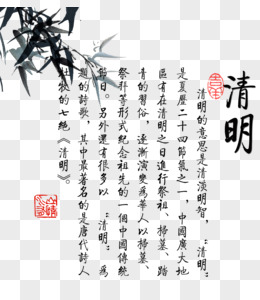 清明
清明的意思是清淡明智，“清明”
是夏歷二十四節氣之一，中國廣大地
區有在清明之日進行祭祖、掃墓、踏
青的習俗，逐漸演變為華人以掃墓、
祭拜等形式紀念祖先的一個中國傳統
節日。另外還有很多以“清明”為
題的詩歌，其中最著名的是唐代詩人
杜牧的七絕《清明》。